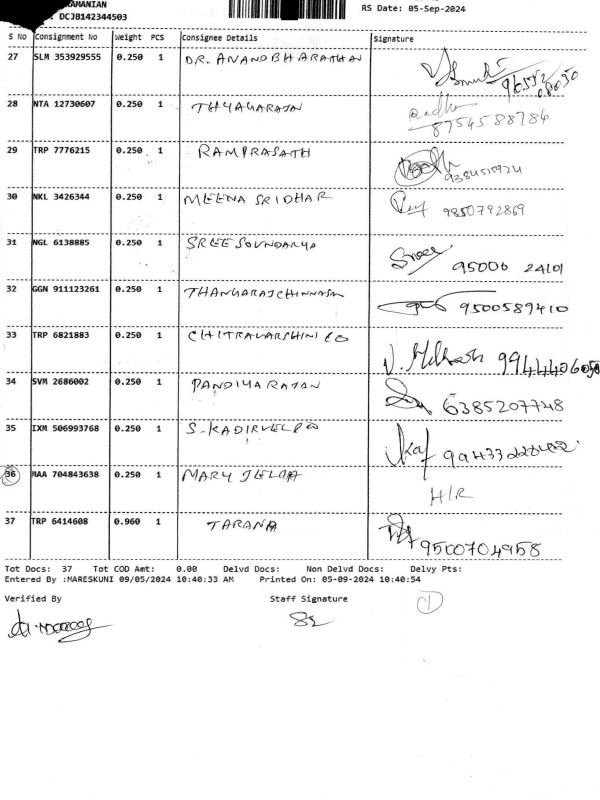 RAMANIAN
: DCJB142344503
RS Date: 05-Sep-2024
S No Consignment No Weight PCS Consignee Details Signature
27 SLM 353929555 0.250 1 DR. ANANDBHARATHAN
28 NTA 12730607 0.250 1 THYAGARAJAN 8754588784
29 TRP 7776215 0.250 1 RAMPRASATH 9384515924
30 NKL 3426344 0.250 1 MEENA SRIDHAR 9850792869
31 NGL 6138885 0.250 1 SREE SOUNDARYA Sree 95006 24101
32 GGN 911123261 0.250 1 THANGARAJCHINNASM 9500589410
33 TRP 6821883 0.250 1 CHITRAVARSHINI CO
34 SVM 2686002 0.250 1 PANDIYARAJAN 6385207748
35 IXM 506993768 0.250 1 S-KADIRVEL
36 MAA 704843638 0.250 1 MARY H/R
37 TRP 6414608 0.960 1 TARANA 9500704958
Tot Docs: 37 Tot COD Amt: 0.00 Delvd Docs: Non Delvd Docs: Delvy Pts:
Entered By :MARESKUNI 09/05/2024 10:40:33 AM Printed On: 05-09-2024 10:40:54
Verified By Staff Signature 1